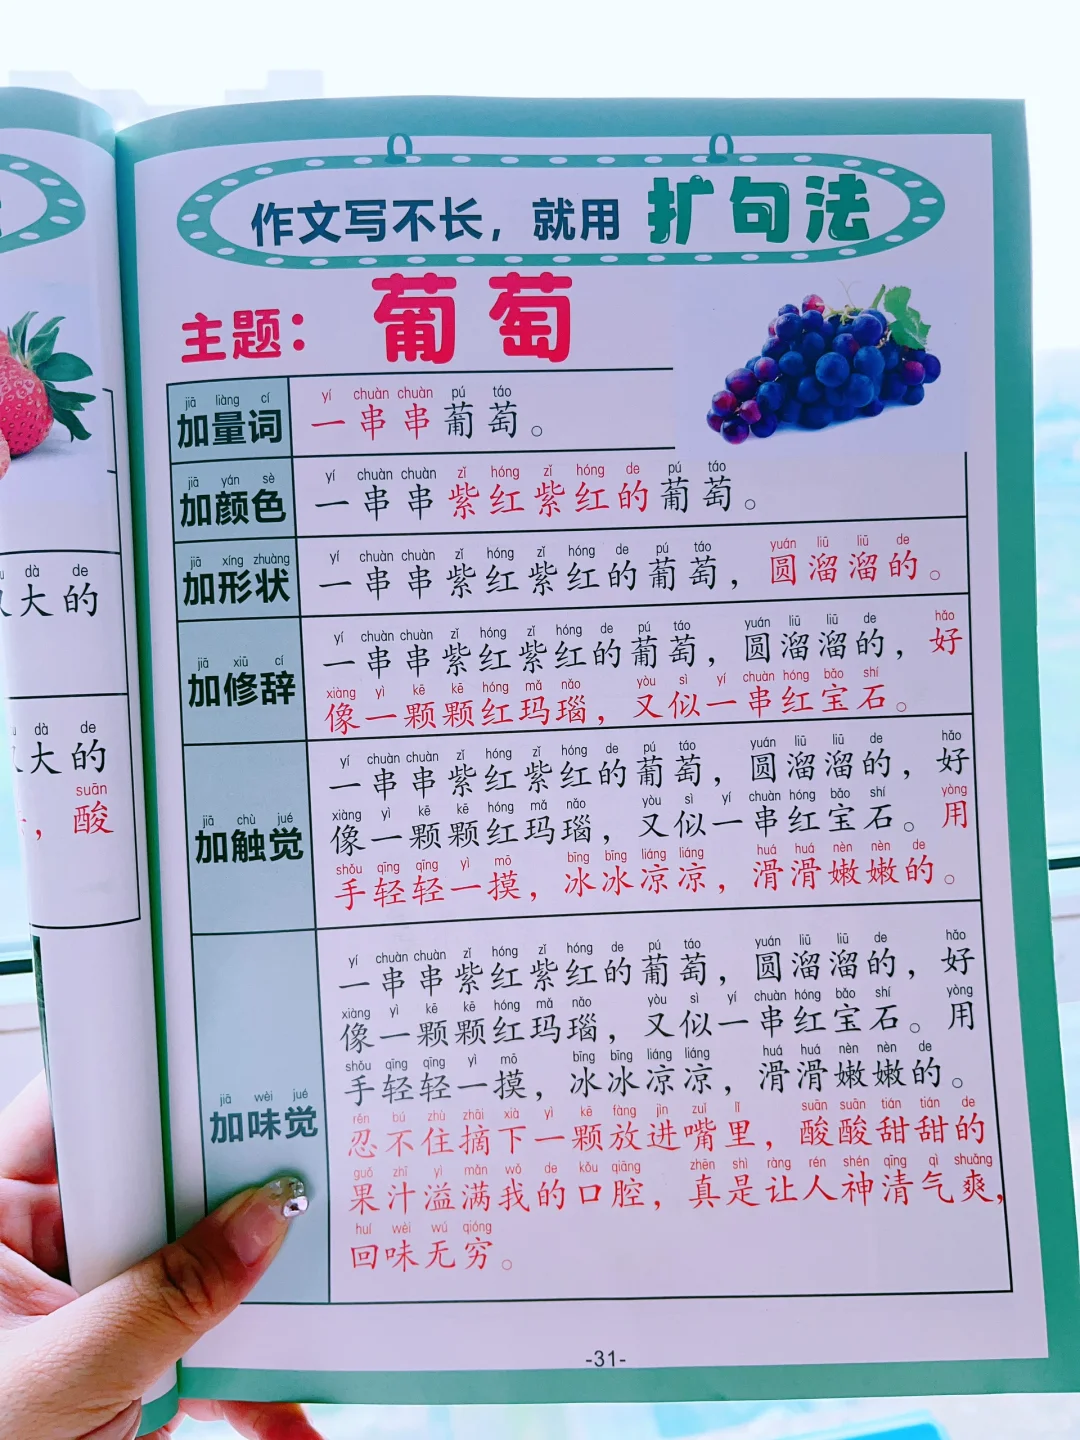 作文写不长，就用 扩句法
主题：葡萄
jiā liàng cí
加量词
yí chuàn chuàn pú táo
一串串葡萄。
jiā yán sè
加颜色
yí chuàn chuàn zǐ hóng zǐ hóng de pú táo
一串串紫红紫红的葡萄。
jiā xíng zhuàng
加形状
yí chuàn chuàn zǐ hóng zǐ hóng de pú táo yuán liū liū de
一串串紫红紫红的葡萄，圆溜溜的。
jiā xiū cí
加修辞
yí chuàn chuàn zǐ hóng zǐ hóng de pú táo yuán liū liū de hǎo
一串串紫红紫红的葡萄，圆溜溜的，好
xiàng yì kē kē hóng mǎ nǎo yòu sì yí chuàn hóng bǎo shí
像一颗颗红玛瑙，又似一串红宝石。
jiā chù jué
加触觉
yí chuàn chuàn zǐ hóng zǐ hóng de pú táo yuán liū liū de hǎo
一串串紫红紫红的葡萄，圆溜溜的，好
xiàng yì kē kē hóng mǎ nǎo yòu sì yí chuàn hóng bǎo shí yòng
像一颗颗红玛瑙，又似一串红宝石。用
shǒu qīng qīng yì mō bīng bīng liáng liáng huá huá nèn nèn de
手轻轻一摸，冰冰凉凉，滑滑嫩嫩的。
jiā wèi jué
加味觉
yí chuàn chuàn zǐ hóng zǐ hóng de pú táo yuán liū liū de hǎo
一串串紫红紫红的葡萄，圆溜溜的，好
xiàng yì kē kē hóng mǎ nǎo yòu sì yí chuàn hóng bǎo shí yòng
像一颗颗红玛瑙，又似一串红宝石。用
shǒu qīng qīng yì mō bīng bīng liáng liáng huá huá nèn nèn de
手轻轻一摸，冰冰凉凉，滑滑嫩嫩的。
rěn bú zhù zhāi xià yì kē fàng jìn zuǐ lǐ suān suān tián tián de
忍不住摘下一颗放进嘴里，酸酸甜甜的
guǒ zhī yì mǎn wǒ de kǒu qiāng zhēn shì ràng rén shén qīng qì shuǎng
果汁溢满我的口腔，真是让人神清气爽，
huí wèi wú qióng
回味无穷。
-31-
dà de
大的
dà de
大的
suān
，酸